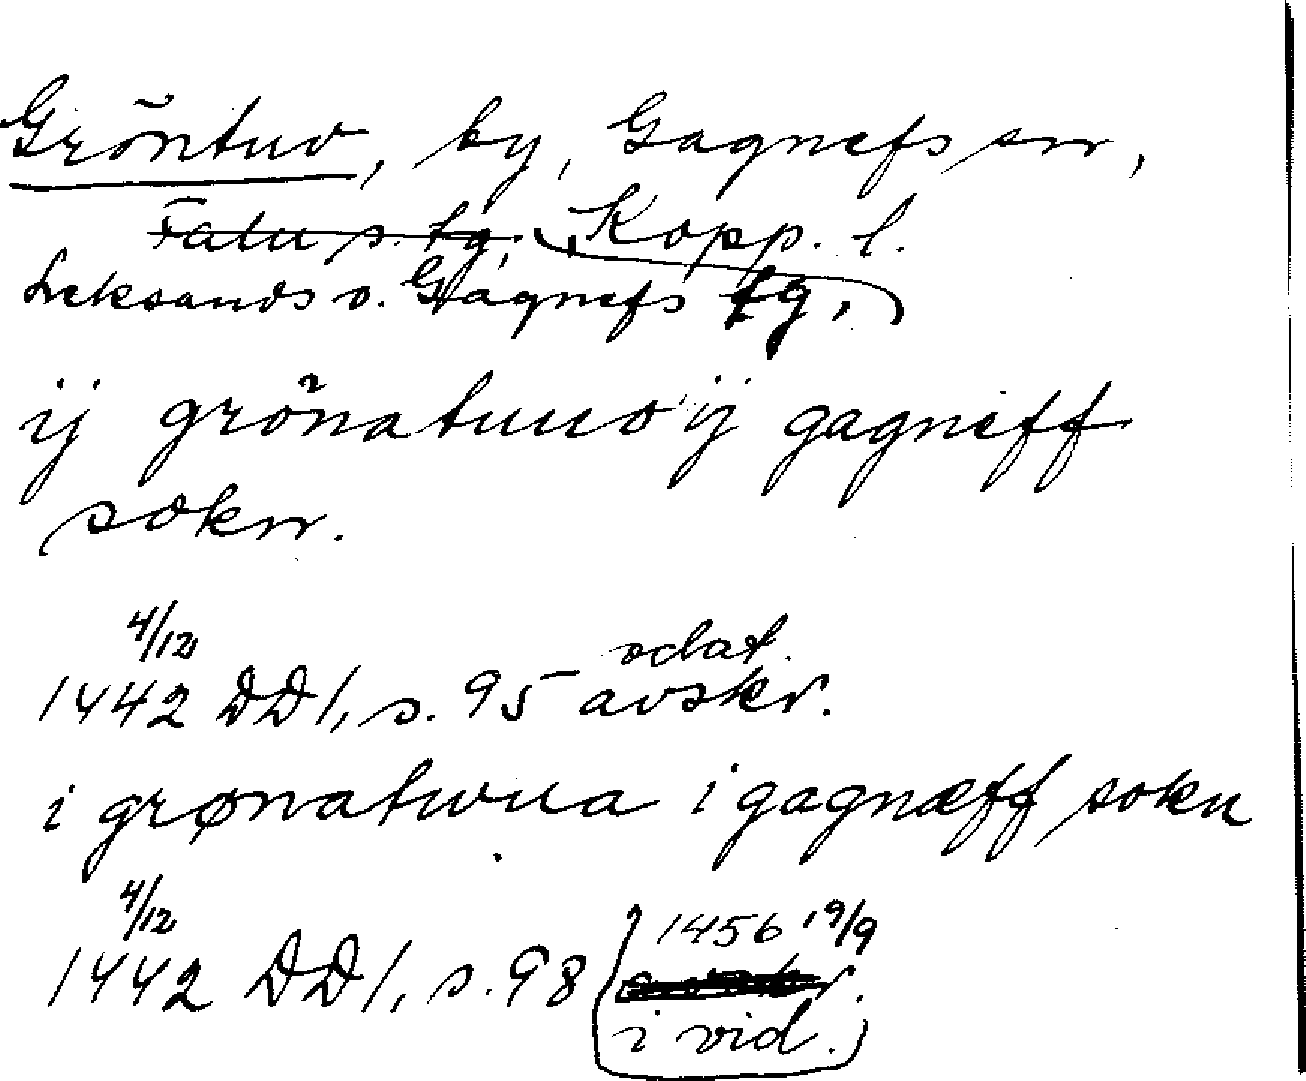 Gröntuv, by, Gagnefs sn,
Falu s. tg., Kopp. l.
Leksands o. Gagnefs tg.
ij grönatuuo ij gagneff
sokn.
4/12 odat.
1442 DD1, s. 95 avskr.
i grønatwua i gagnæff sokn
4/12 1456 19/9
1442 DD1, s. 98
i vid.